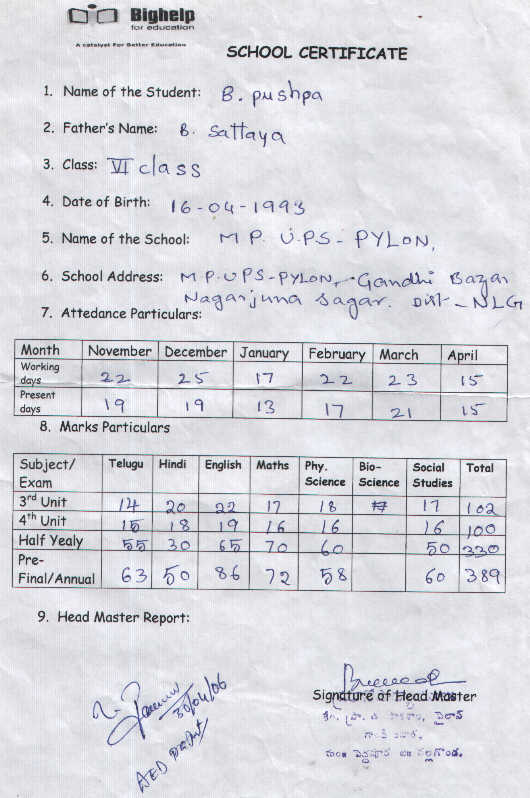 Bighelp
for education
A catalyst For Better Education
SCHOOL CERTIFICATE
1. Name of the Student: B. pushpa
2. Father's Name: B. Sattaya
3. Class: VI class
4. Date of Birth: 16-04-1993
5. Name of the School: M P. U.P.S - PYLON,
6. School Address: M P.UPS-PYLON, Gandhi Bazar
Nagarjuna sagar. Dist - NLG
7. Attedance Particulars:
Month November December January February March April
Working days 22 25 17 22 23 15
Present days 19 19 13 17 21 15
8. Marks Particulars
Subject/ Exam Telugu Hindi English Maths Phy. Science Bio- Science Social Studies Total
3rd Unit 14 20 22 17 18 17 102
4th Unit 15 18 19 16 16 16 100
Half Yealy 55 30 65 70 60 50 330
Pre- Final/Annual 63 50 86 72 58 60 389
9. Head Master Report:
30/04/06
Signature of Head Master